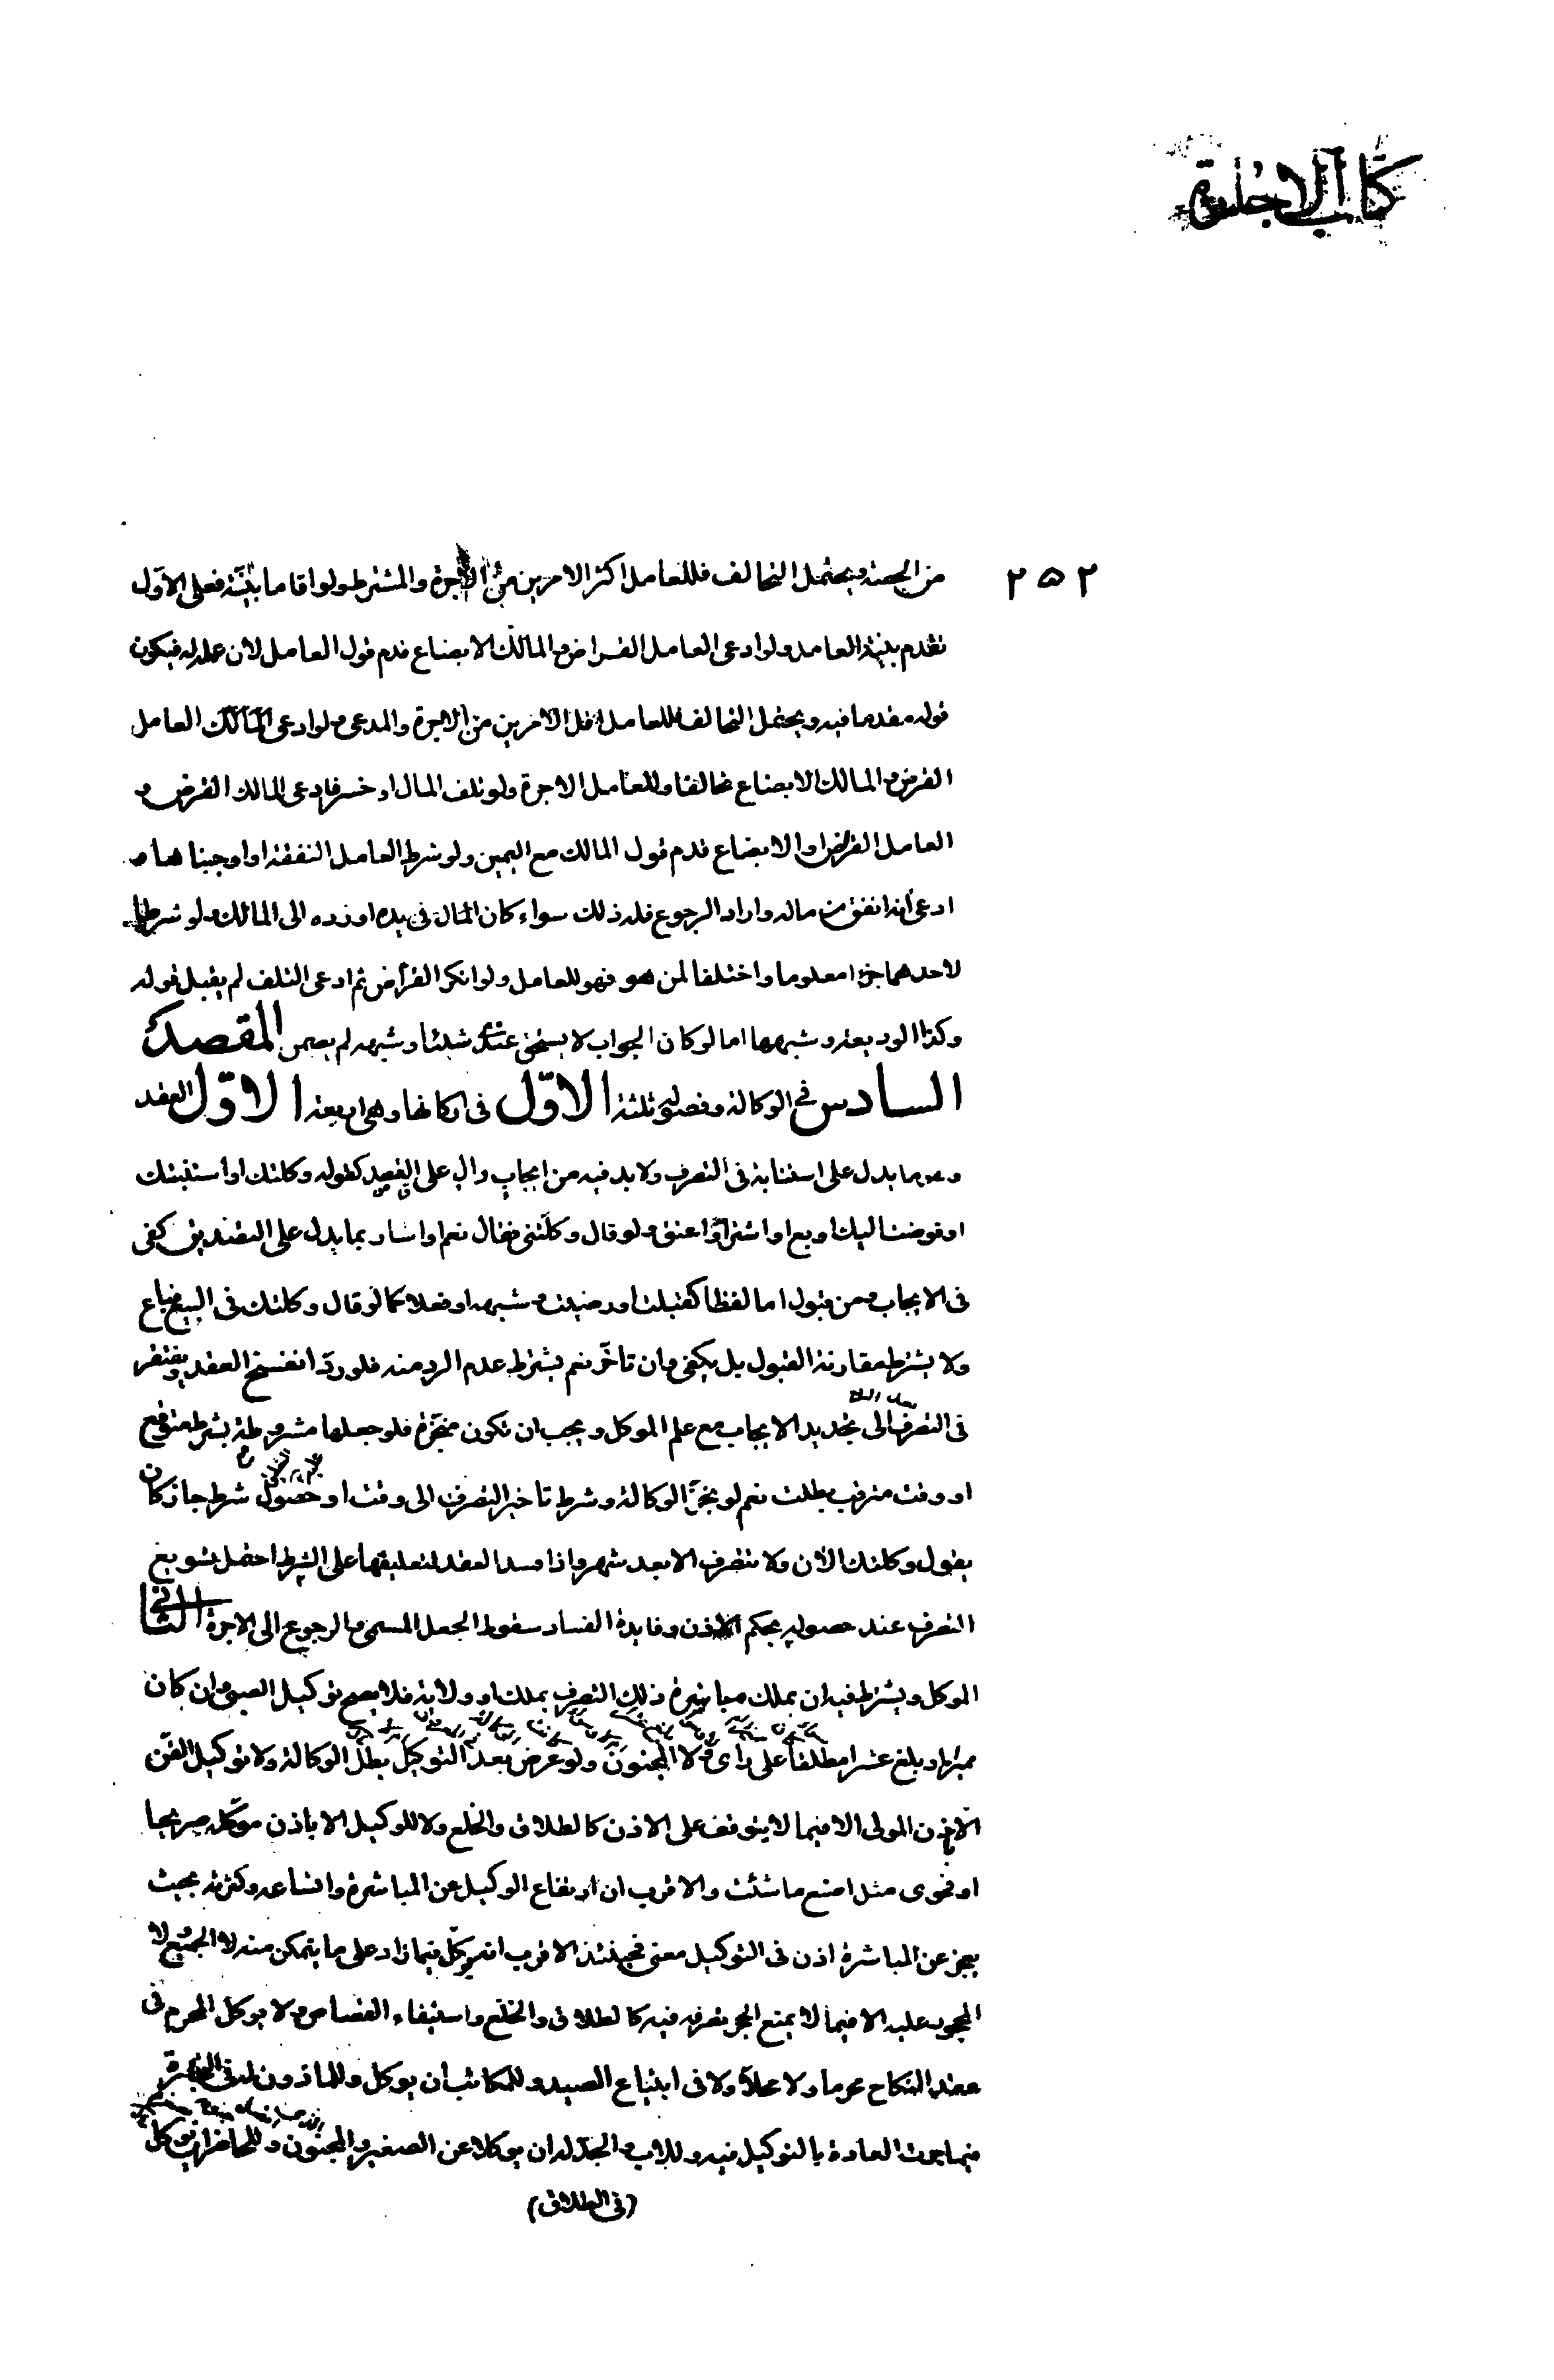 كتاب الاجارة
٢٥٢
من الحصة ويحتمل التحالف فللعامل اكثر الامرين من الاجرة والمشترط ولو اقاما بينة فعلى الاول
تقدم بينة العامل ولو ادعى العامل القراض والمالك الابضاع قدم قول العامل لان عمله له فيكون
قوله مقدما فيه ويحتمل التحالف فللعامل اقل الامرين من الاجرة والمدعى ولو ادعى المالك العامل
القرض والمالك الابضاع تحالفا وللعامل الاجرة ولو تلف المال او خسر فادعى المالك القرض و
العامل القراض او الابضاع قدم قول المالك مع اليمين ولو شرط العامل النفقة او اوجبناها و
ادعى انه انفق من ماله واراد الرجوع فله ذلك سواء كان المال فى يده او رده الى المالك ولو شرطا
لاحدهما جزءا معلوما واختلفا لمن هو فهو للعامل ولو انكر القراض ثم ادعى التلف لم يقبل قوله
وكذا الوديعة وشبهها اما لو كان الجواب لا يستحق عندى شيئا وشبهه لم يضمن المقصد
السادس فى الوكالة وفصوله ثلثة الاول فى اركانها وهى اربعة الاول العقد
وهو ما يدل على استنابة فى التصرف ولا بد فيه من ايجاب دال على القصد كقوله وكلتك او استنبتك
او فوضت اليك او بع او اشتر او اعتق ولو قال وكلتنى فقال نعم او اشار بما يدل على التصديق كفى
فى الايجاب ومن قبول اما لفظا كقبلت او رضيت وشبهه او فعلا كما لو قال وكلتك فى البيع فباع
ولا يشترط مقارنة القبول بل يكفى وان تاخر نعم يشترط عدم الرد منه فلو رد انفسخ العقد ويفتقر
فى التصرف الى تجديد الايجاب مع علم الموكل ويجب ان تكون منجزة فلو جعلها مشروطة بشرط متوقع
او وقت مترقب بطلت نعم لو نجز الوكالة وشرط تاخير التصرف الى وقت او حصول شرط جاز كان
يقول وكلتك الان ولا تتصرف الا بعد شهر واذا فسد العقد لتعليقها على الشرط احتمل تسويغ
التصرف عند حصوله بحكم الاذن وفايدة الفساد سقوط الجعل المسمى والرجوع الى الاجرة الثانى
الموكل ويشترط فيه ان يملك مباشرة ذلك التصرف بملك او ولاية فلا يصح توكيل الصبى وان كان
مميزا او بلغ عشرا مطلقا على راى ولا المجنون ولو عرض بعد التوكيل بطل الوكالة ولا توكيل القن
الا باذن المولى الا فيما لا يتوقف على الاذن كالطلاق والخلع ولا للوكيل الا باذن موكله صريحا
او فحوى مثل اصنع ما شئت والاقرب ان ارتفاع الوكيل عن المباشرة واتساعه وكثرته بحيث
يعجز عن المباشرة اذن فى التوكيل معنى فحينئذ الاقرب انه يوكل فيما زاد على ما يتمكن منه لا الجميع ولا
المحجور عليه الا فيما لا يمنع الحجر تصرفه فيه كالطلاق والخلع واستيفاء القصاص ولا يوكل المحرم فى
عقد النكاح محرما ولا محلا ولا فى ابتياع الصيد وللمكاتب ان يوكل وللماذون له فى التجارة
فيما جرت العادة بالتوكيل فيه وللاب والجد له ان يوكلا عن الصغير والمجنون وللحاضر ان يوكل
(فى الطلاق)